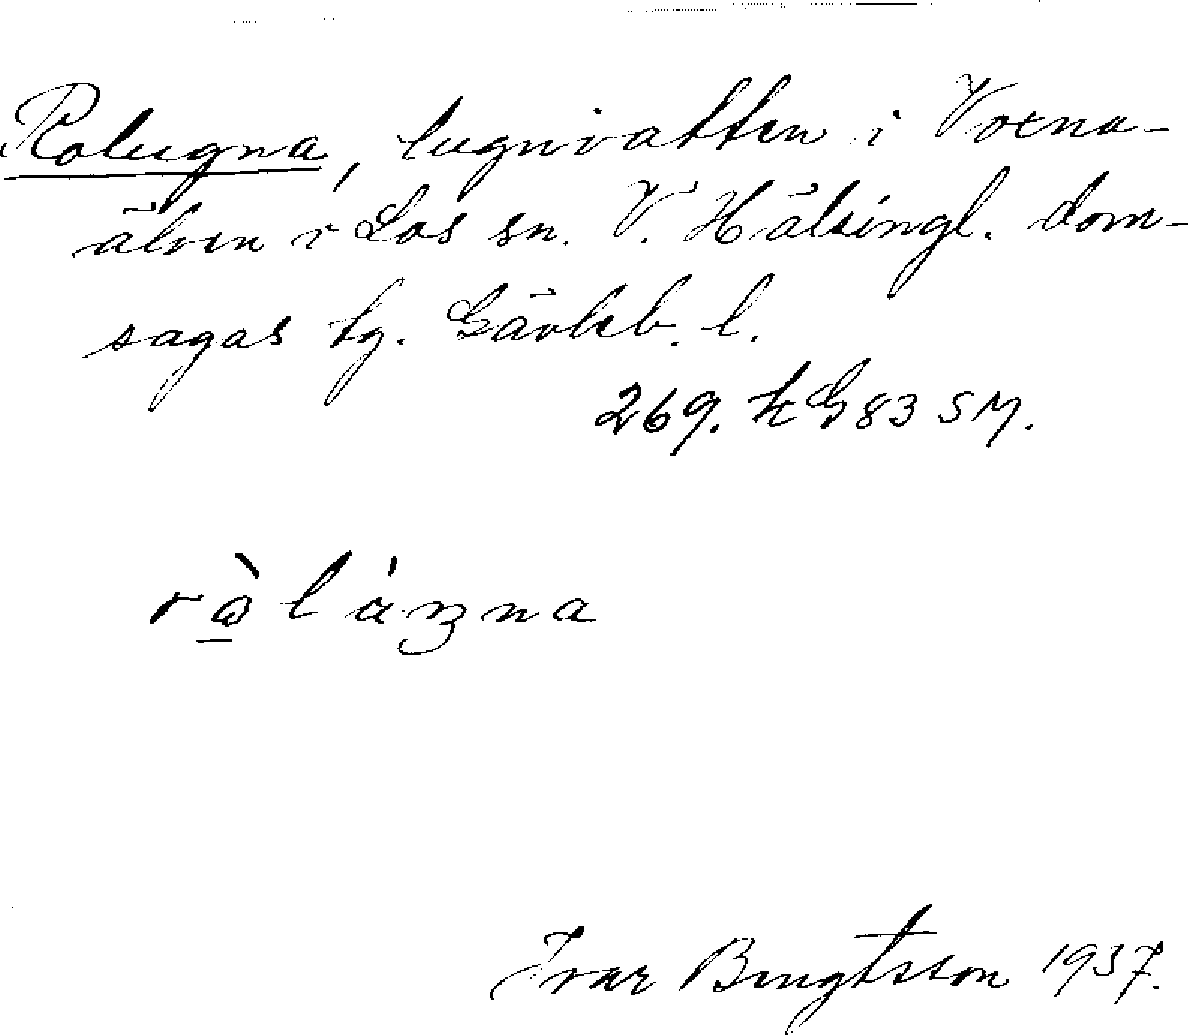 Rolugna, lugnvatten i Voxna-
älven i Los sn. V. Hälsingl. dom-
sagas tg. Gävleb. l.
269. k G 83 SM.
Ivar Bengtsson 1937.